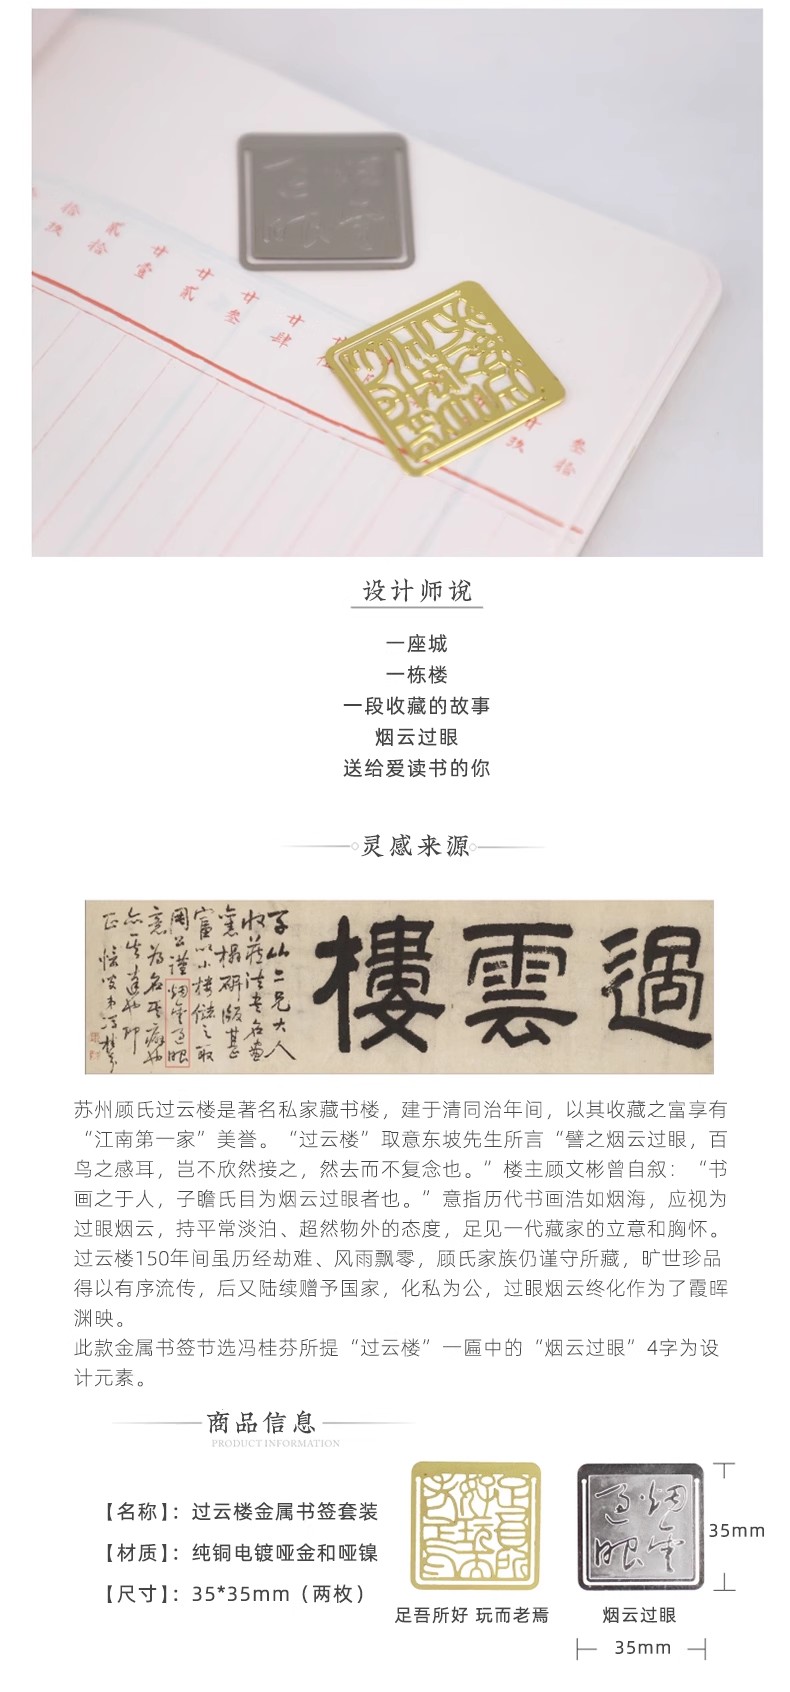 拾 贰 廿 廿 廿 廿 廿 廿 叁
玖 拾 壹 贰 叁 肆 玖 拾
设计师说
一座城
一栋楼
一段收藏的故事
烟云过眼
送给爱读书的你
灵感来源
過雲樓
子山二兄大人
收藏法书名画
富以小楼储之取
周公谨烟雲过眼
意为名
苏州顾氏过云楼是著名私家藏书楼，建于清同治年间，以其收藏之富享有
“江南第一家”美誉。“过云楼”取意东坡先生所言“譬之烟云过眼，百
鸟之感耳，岂不欣然接之，然去而不复念也。”楼主顾文彬曾自叙：“书
画之于人，子瞻氏目为烟云过眼者也。”意指历代书画浩如烟海，应视为
过眼烟云，持平常淡泊、超然物外的态度，足见一代藏家的立意和胸怀。
过云楼150年间虽历经劫难、风雨飘零，顾氏家族仍谨守所藏，旷世珍品
得以有序流传，后又陆续赠予国家，化私为公，过眼烟云终化作为了霞晖
渊映。
此款金属书签节选冯桂芬所提“过云楼”一匾中的“烟云过眼”4字为设
计元素。
商品信息
PRODUCT INFORMATION
【名称】：过云楼金属书签套装
【材质】：纯铜电镀哑金和哑镍
【尺寸】：35*35mm（两枚）
烟雲
过眼
35mm
足吾所好 玩而老焉
烟云过眼
35mm